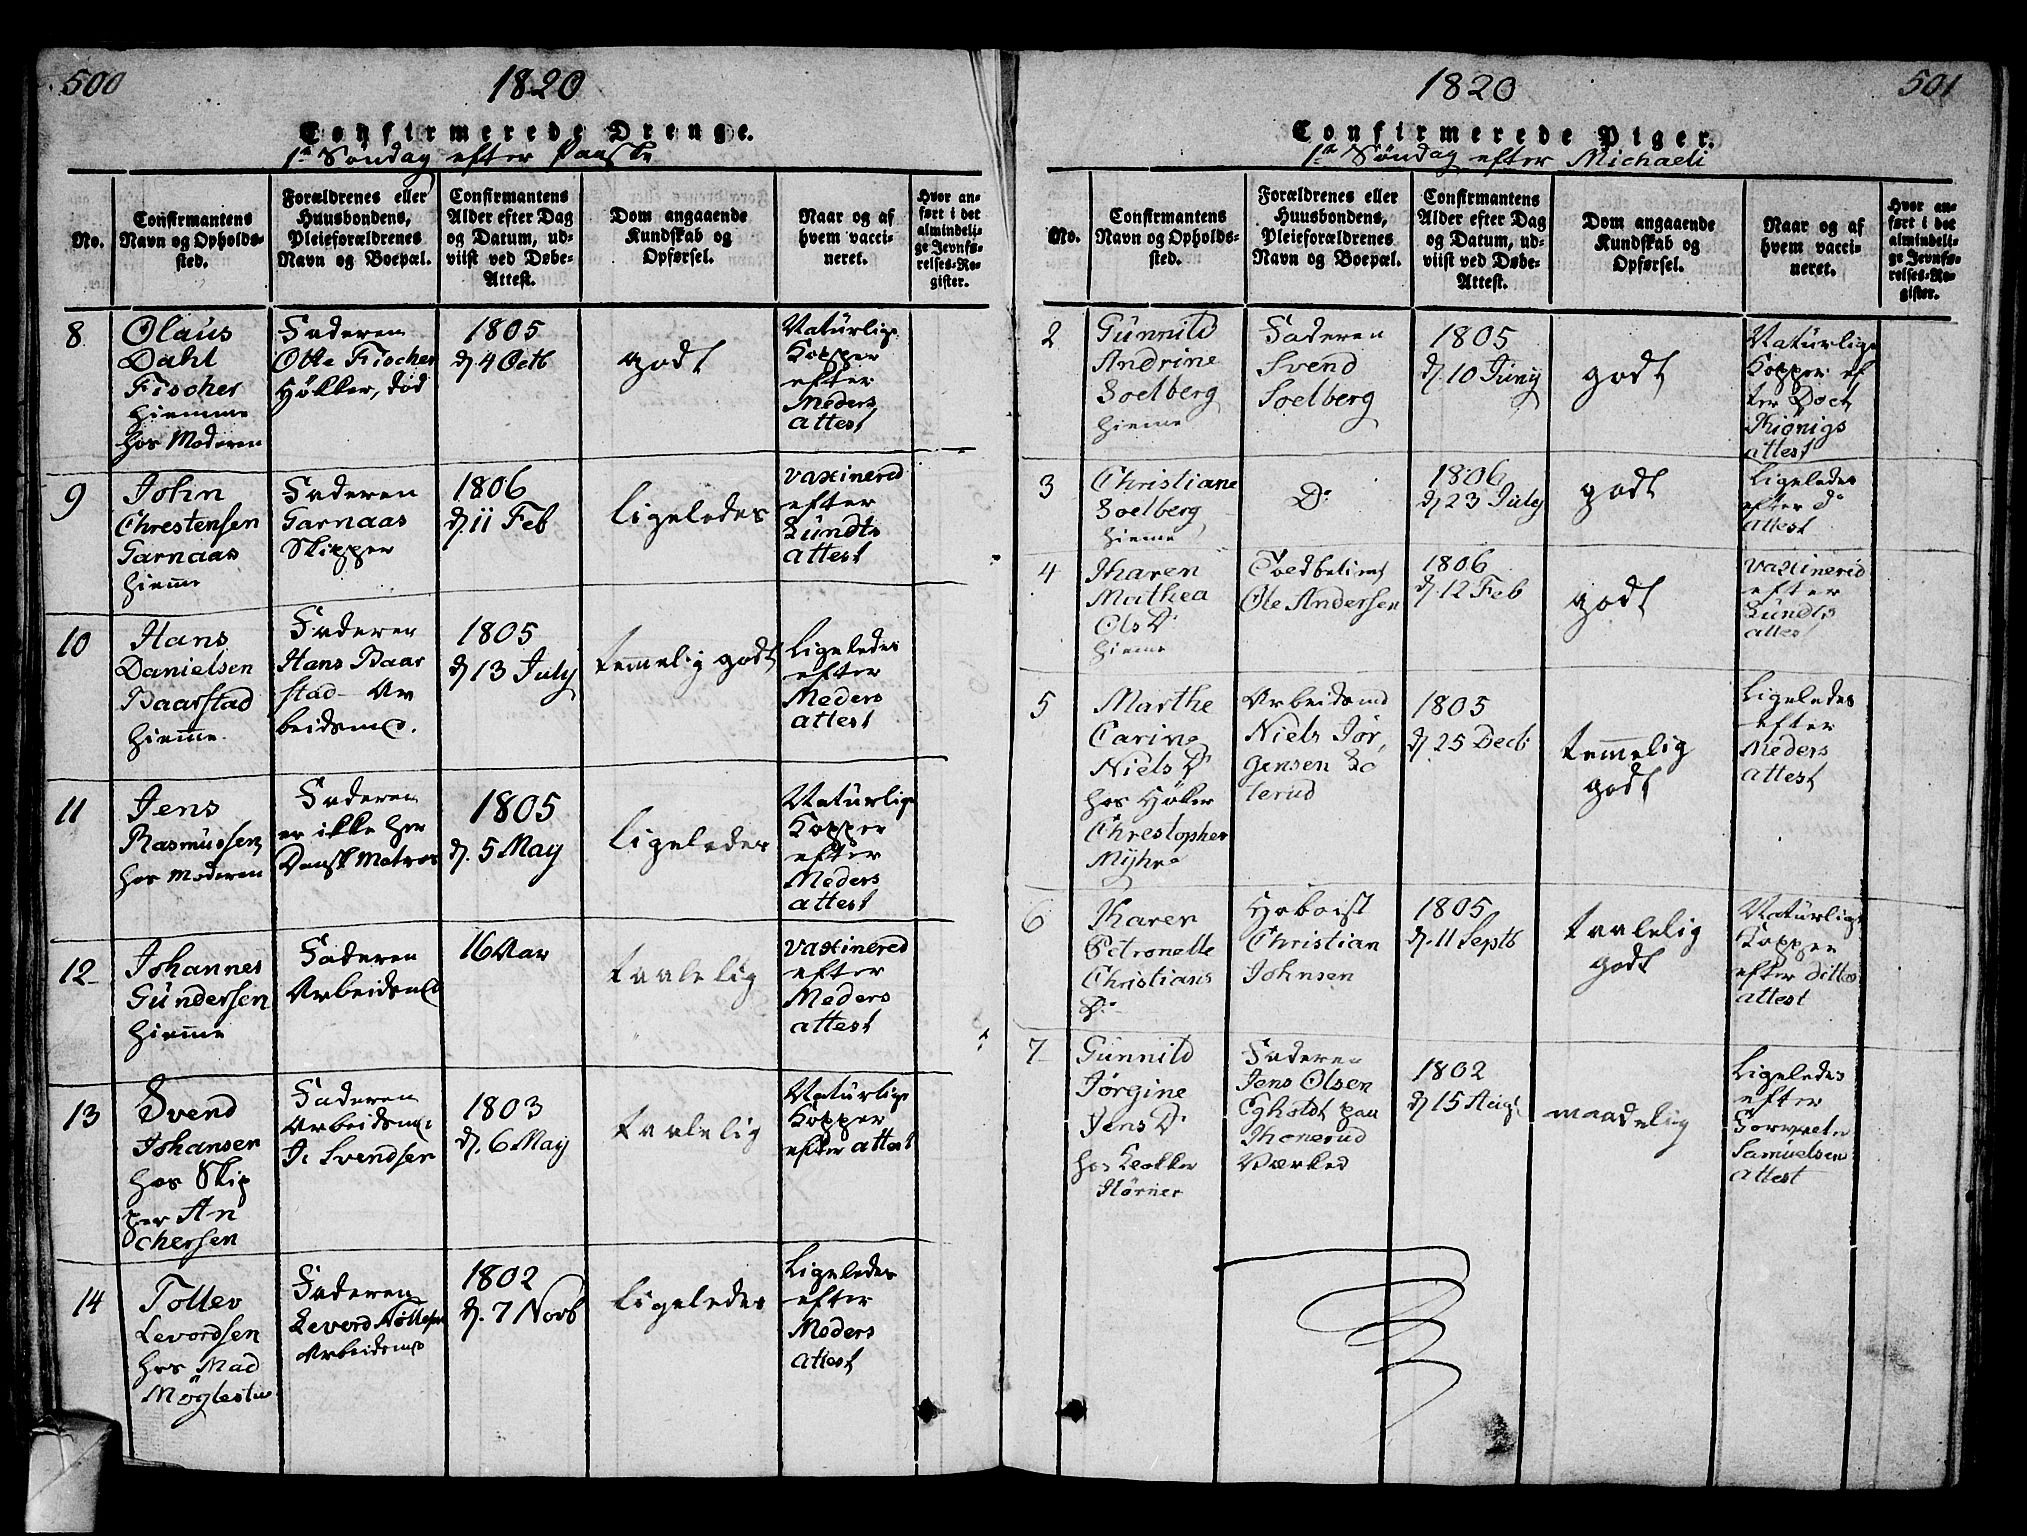 500
1820
Confirmerede Drenge.
1ste Søndag efter Paaske
No.
Confirmantens
Navn og Opholds-
sted.
Forældrenes eller
Huusbondens,
Pleieforældrenes
Navn og Boepæl.
Confirmantens
Alder efter Dag
og Datum, ud-
viist ved Døbe-
Attest.
Dom angaaende
Kundskab og
Opførsel.
Naar og af
hvem vacci-
neret.
Hvor an-
ført i det
almindeli-
ge Jevnfø-
relses-Re-
gister.
8
Olaus
Dahl
Fischer
hiemme
hos Moderen
Faderen
Otte Fischer
Høkker, død
1805
d. 4 Octb
godt
Naturlige
Kopper
efter
Meders
attest
9
John
Chrestensen
Garnaas
hieme
Faderen
Garnaas
Skipper
1806
d. 11 Feb
ligeledes
vaxinered
efter
Lundts
attest
10
Hans
Danielsen
Baarstad
hieme
Faderen
Hans Baar
stad Ar
beidsmd.
1805
d. 13 July
temelig godt
Ligeledes
efter
Meders
attest
11
Jens
Rasmussen
hos Moderen
Faderen
er ikke her
Dansk Matros
1805
d. 5 May
ligeledes
Naturlige
Kopper
efter
Meders
attest
12
Johannes
Gundersen
hieme
Faderen
Arbeidsmd
16 Aar
taalelig
vaxinered
efter
Meders
attest
13
Svend
Johansen
hos Skip
per An
chersen
Faderen
Arbeidsmd
J. Svendsen
1803
d. 6 May
taalelig
Naturlige
Kopper
efter attest
14
Tollev
Levordsen
hos Mad
Møglestue
Faderen
Levord Tøllefsen
Arbeidsmd
1802
d. 7 Novb
ligeledes
Ligeledes
efter
Meders
attest
501
1820
Confirmerede Piger.
1ste Søndag efter Michaeli
No.
Confirmantens
Navn og Opholds-
sted.
Forældrenes eller
Huusbondens,
Pleieforældrenes
Navn og Boepæl.
Confirmantens
Alder efter Dag
og Datum, ud-
viist ved Døbe-
Attest.
Dom angaaende
Kundskab og
Opførsel.
Naar og af
hvem vacci-
neret.
Hvor an-
ført i det
almindeli-
ge Jevnfø-
relses-Re-
gister.
2
Gunnild
Andrine
Soelberg
hieme
Faderen
Svend
Soelberg
1805
d. 10 Juny
godt
Naturlige
Kopper ef
ter Doct
Kiønigs
attest
3
Christiane
Soelberg
hieme
Do
1806
d. 23 July
godt
Ligeledes
efter do
attest
4
Karen
Mathea
Ols D
hieme
Ole Andersen
1806
d. 12 Feb
godt
vaxinered
efter
Lundts
attest
5
Marthe
Carine
Niels D
hos Høker
Chrestopher
Myhre
Arbeidsmd
Niels Jør
gensen Bo
lerud
1805
d. 25 Decb
temelig
godt
Ligeledes
efter
Meders
attest
6
Karen
Petronelle
Christians
D
Hoboist
Christian
Johnsen
1805
d. 11 Septb
taalelig
godt
Naturlige
Kopper
efter ditto
attest
7
Gunnild
Jørgine
Jens D
hos Klokker
Hørner
Faderen
Jens Olsen
Egholdt paa
Værket
1802
d. 15 Aug
maadelig
Ligeledes
efter
Samuelsens
attest